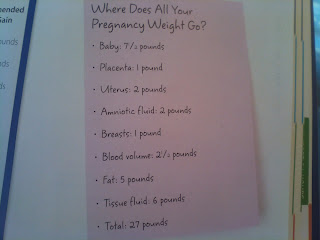 Where Does All Your
Pregnancy Weight Go?
• Baby: 7½ pounds
• Placenta: 1 pound
• Uterus: 2 pounds
• Amniotic fluid: 2 pounds
• Breasts: 1 pound
• Blood volume: 2½ pounds
• Fat: 5 pounds
• Tissue fluid: 6 pounds
• Total: 27 pounds